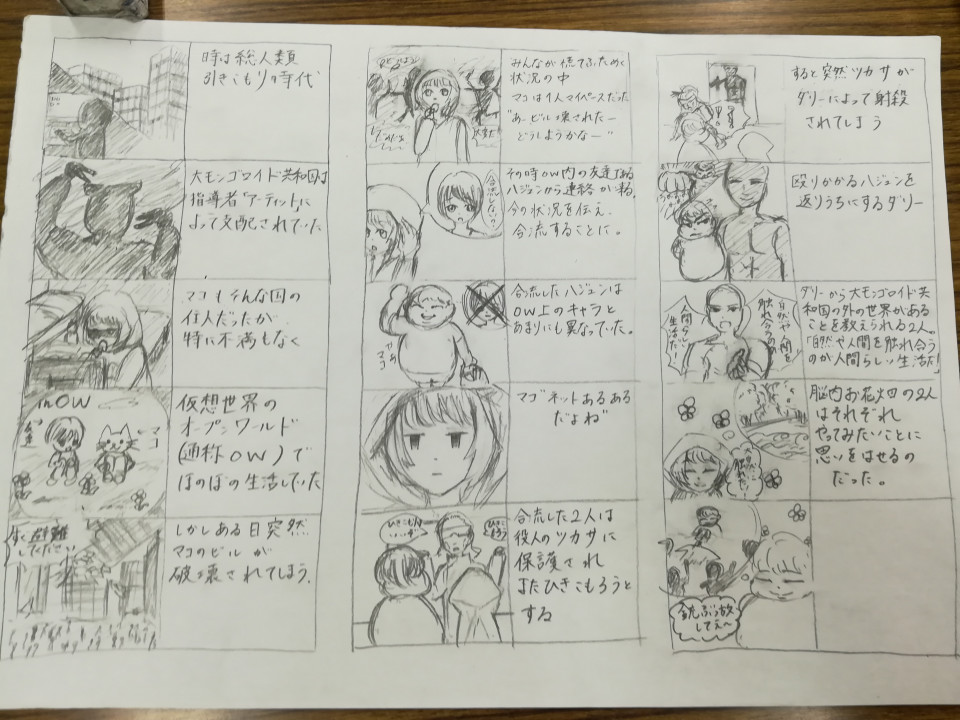 時は総人類
引きこもりの時代
大モンゴロイド共和国は
指導者「アーティント」に
よって支配されていた
マコもそんな国の
住人だったが
特に不満もなく
in OW
マコ
仮想世界の
オープンワールド
(通称OW)で
ほのぼの生活していた
避難
してください
しかしある日突然
マコのビルが
破壊されてしまう.
みんなが慌てふためく
状況の中
マコは1人マイペースだった
"あービル壊されたー
どうしようかなー"
大変だ
合流しない?
その時OW内の友達である
ハジュンから連絡が来る.
今の状況を伝え、
合流することに。
マコ
合流したハジュンは
OW上のキャラと
あまりにも異なっていた。
マゴ ネットあるある
だよね"
ひきこもん
ひきこ
もろう
合流した2人は
役人のツカサに
保護され
またひきこもろうと
する
すると突然ツカサが
ダリーによって射殺
されてしまう
殴りかかるハジュンを
返りうちにするダリー
人間らしい
生活だ!
自然や人間を
触れ合うのが
ダリーから大モンゴロイド共
和国の外の世界がある
ことを教えられる2人。
「自然や人間を触れ合う
のが人間らしい生活だ」
脳内お花畑の2人
はそれぞれ
やってみたいことに
思いをはせるの
だった。
銃ぶっ放
してえ〜